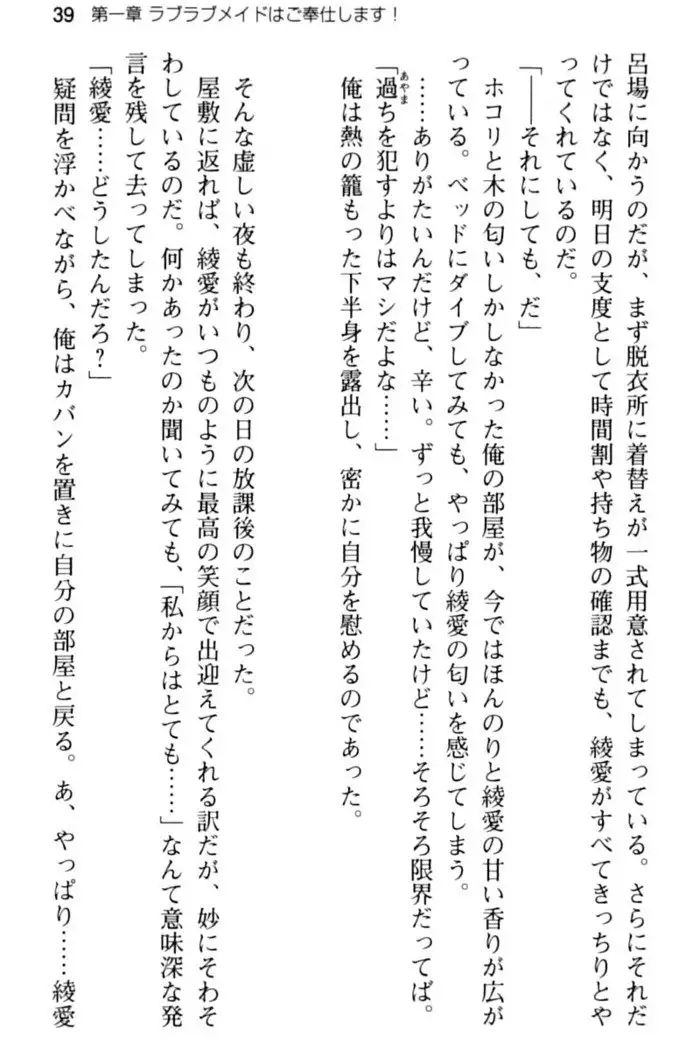 39 第一章 ラブラブメイドはご奉仕します！
呂場に向かうのだが、まず脱衣所に着替えが一式用意されてしまっている。さらにそれだ
けではなく、明日の支度として時間割や持ち物の確認までも、綾愛がすべてきっちりとや
ってくれているのだ。
「――それにしても、だ」
ホコリと木の匂いしかしなかった俺の部屋が、今ではほんのりと綾愛の甘い香りが広が
っている。ベッドにダイブしてみても、やっぱり綾愛の匂いを感じてしまう。
……ありがたいんだけど、辛い。ずっと我慢していたけど……そろそろ限界だってば。
「過あやまちを犯すよりはマシだよな……」
俺は熱の籠もった下半身を露出し、密かに自分を慰めるのであった。
そんな虚しい夜も終わり、次の日の放課後のことだった。
屋敷に返れば、綾愛がいつものように最高の笑顔で出迎えてくれる訳だが、妙にそわそ
わしているのだ。何かあったのか聞いてみても、「私からはとても……」なんて意味深な発
言を残して去ってしまった。
「綾愛……どうしたんだろ？」
疑問を浮かべながら、俺はカバンを置きに自分の部屋と戻る。あ、やっぱり……綾愛